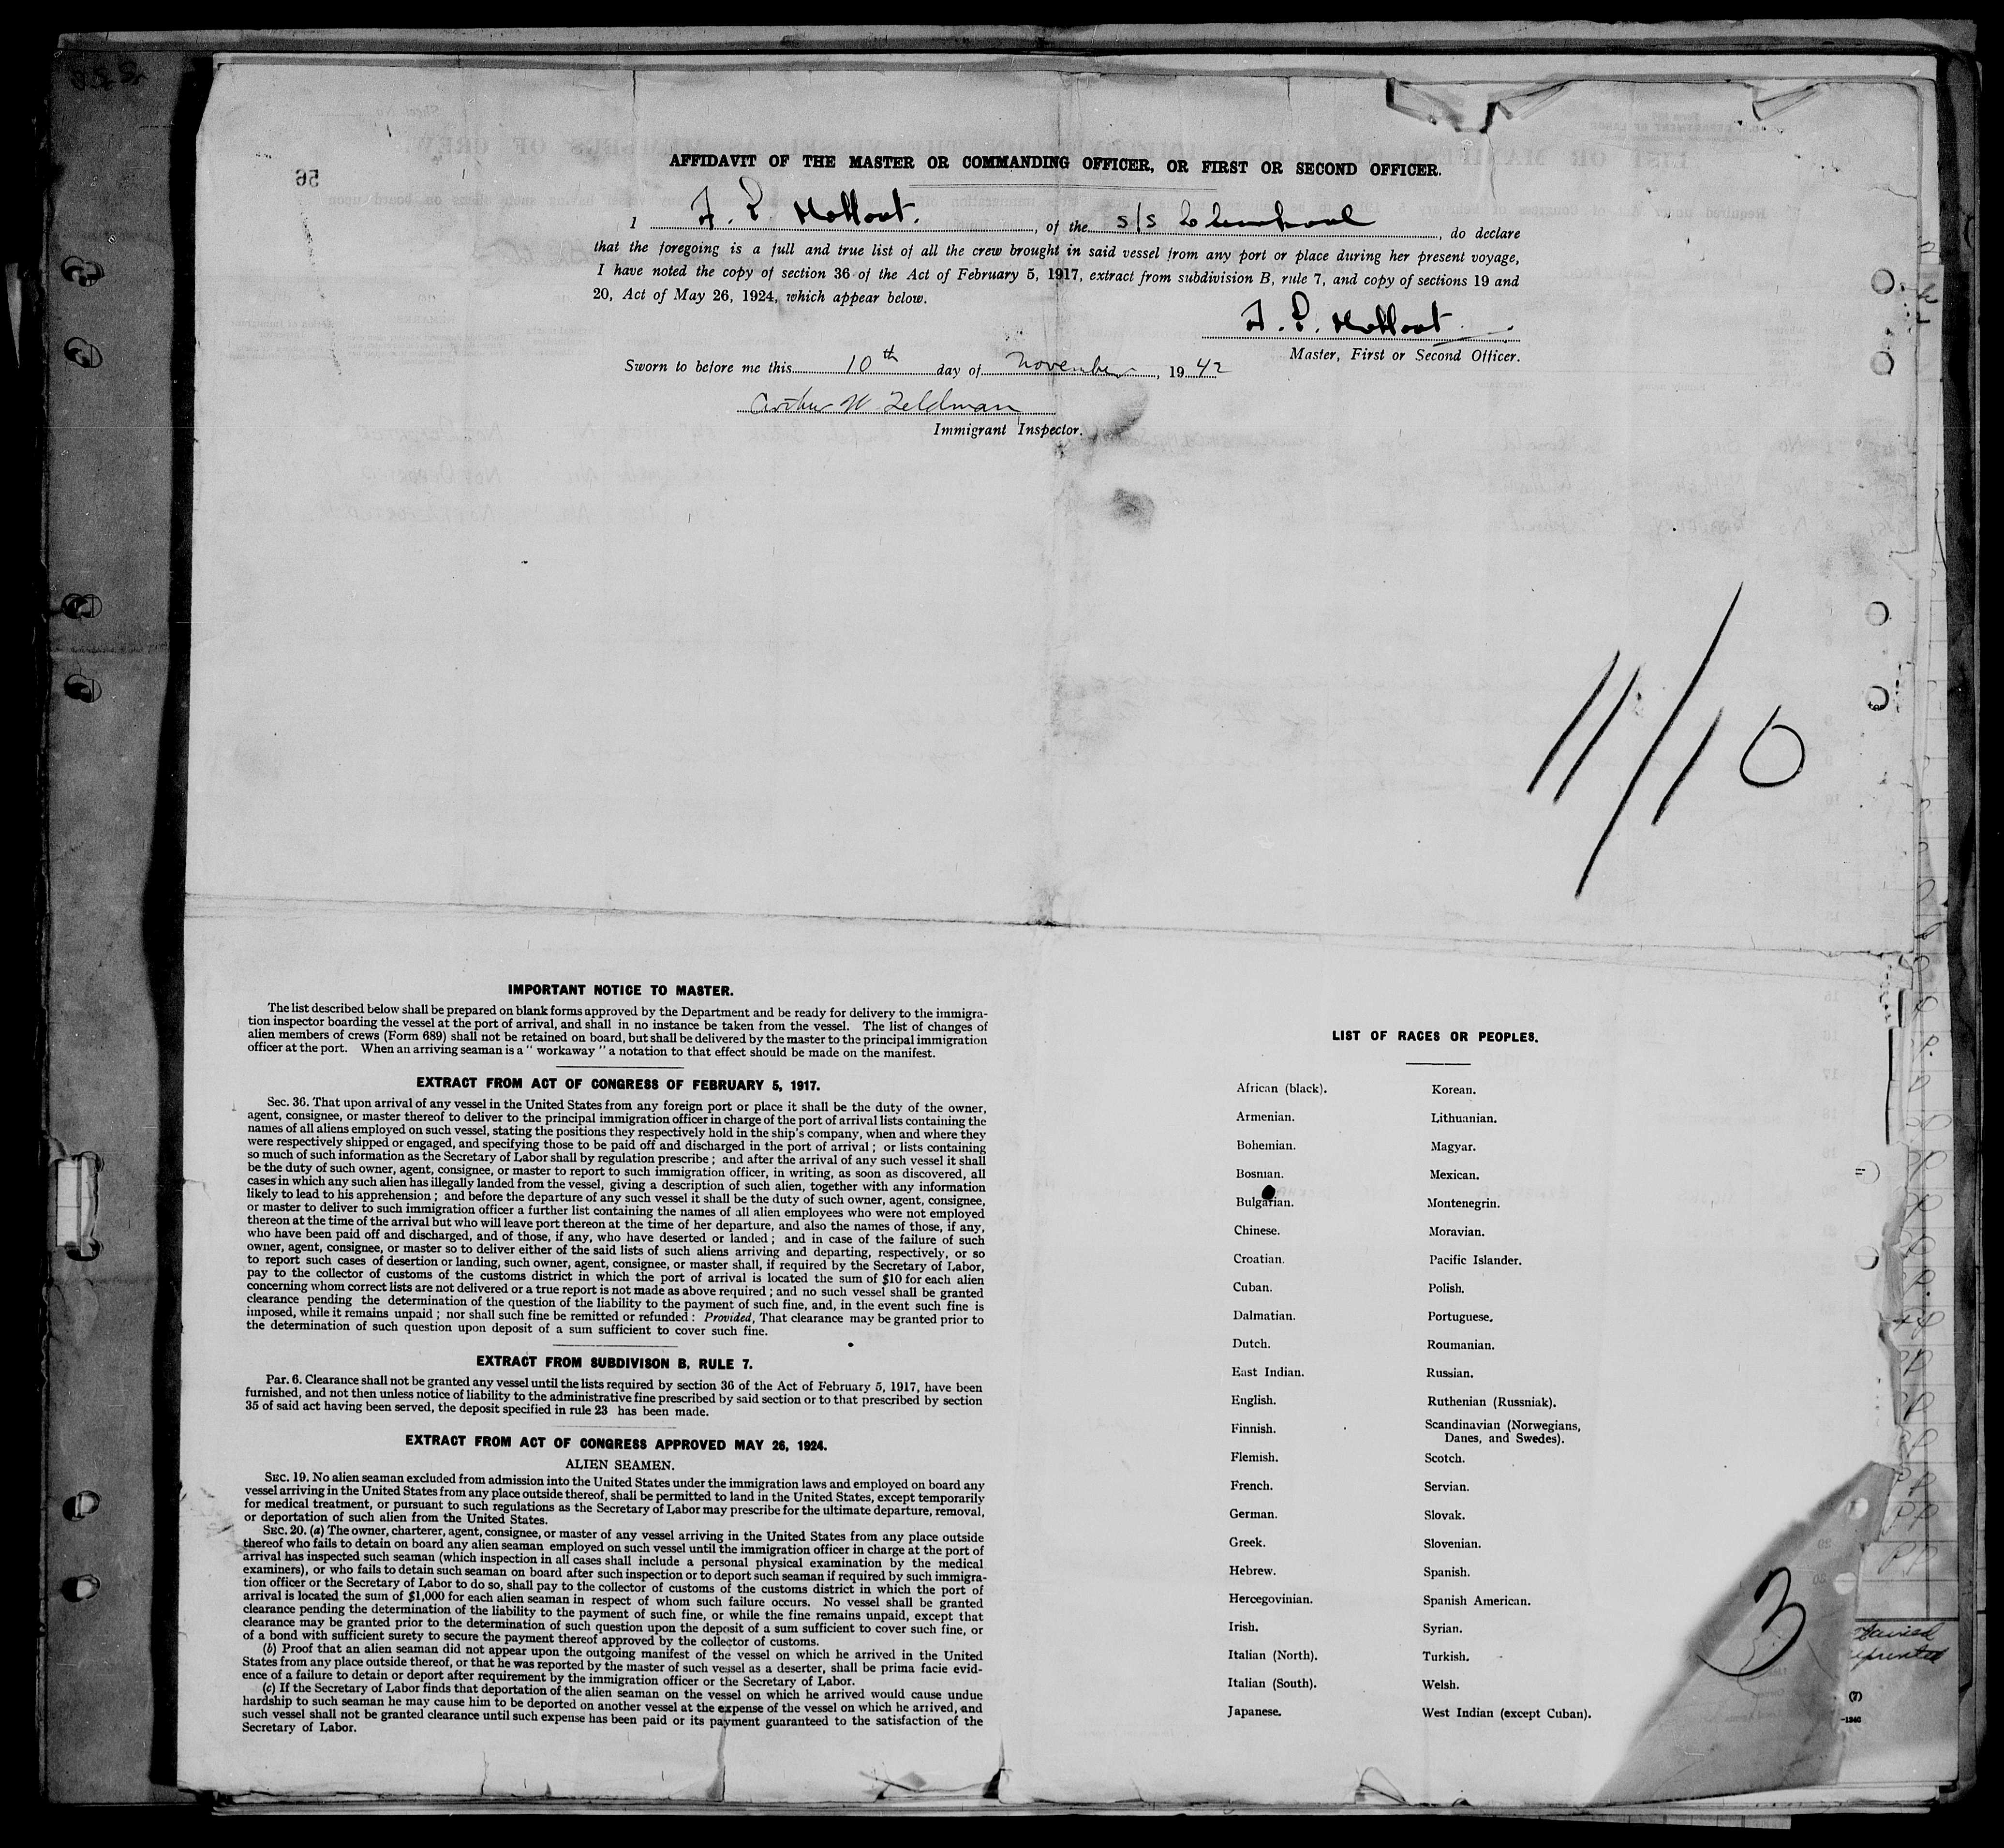 AFFIDAVIT OF THE MASTER OR COMMANDING OFFICER, OR FIRST OR SECOND OFFICER.
56
I F. E. , of the S/S , do declare
that the foregoing is a full and true list of all the crew brought in said vessel from any port or place during her present voyage,
I have noted the copy of section 36 of the Act of February 5, 1917, extract from subdivision B, rule 7, and copy of sections 19 and
20, Act of May 26, 1924, which appear below.
Master, First or Second Officer.
Sworn to before me this 10th day of November, 1942
Arthur W. Feldman
Immigrant Inspector.
11/10
IMPORTANT NOTICE TO MASTER.
The list described below shall be prepared on blank forms approved by the Department and be ready for delivery to the immigra-
tion inspector boarding the vessel at the port of arrival, and shall in no instance be taken from the vessel. The list of changes of
alien members of crews (Form 689) shall not be retained on board, but shall be delivered by the master to the principal immigration
officer at the port. When an arriving seaman is a "workaway" a notation to that effect should be made on the manifest.
EXTRACT FROM ACT OF CONGRESS OF FEBRUARY 5, 1917.
Sec. 36. That upon arrival of any vessel in the United States from any foreign port or place it shall be the duty of the owner,
agent, consignee, or master thereof to deliver to the principal immigration officer in charge of the port of arrival lists containing the
names of all aliens employed on such vessel, stating the positions they respectively hold in the ship's company, when and where they
were respectively shipped or engaged, and specifying those to be paid off and discharged in the port of arrival; or lists containing
so much of such information as the Secretary of Labor shall by regulation prescribe; and after the arrival of any such vessel it shall
be the duty of such owner, agent, consignee, or master to report to such immigration officer, in writing, as soon as discovered, all
cases in which any such alien has illegally landed from the vessel, giving a description of such alien, together with any information
likely to lead to his apprehension; and before the departure of any such vessel it shall be the duty of such owner, agent, consignee,
or master to deliver to such immigration officer a further list containing the names of all alien employees who were not employed
thereon at the time of the arrival but who will leave port thereon at the time of her departure, and also the names of those, if any,
who have been paid off and discharged, and of those, if any, who have deserted or landed; and in case of the failure of such
owner, agent, consignee, or master so to deliver either of the said lists of such aliens arriving and departing, respectively, or so
to report such cases of desertion or landing, such owner, agent, consignee, or master shall, if required by the Secretary of Labor,
pay to the collector of customs of the customs district in which the port of arrival is located the sum of $10 for each alien
concerning whom correct lists are not delivered or a true report is not made as above required; and no such vessel shall be granted
clearance pending the determination of the question of the liability to the payment of such fine, and, in the event such fine is
imposed, while it remains unpaid; nor shall such fine be remitted or refunded: Provided, That clearance may be granted prior to
the determination of such question upon deposit of a sum sufficient to cover such fine.
EXTRACT FROM SUBDIVISON B, RULE 7.
Par. 6. Clearance shall not be granted any vessel until the lists required by section 36 of the Act of February 5, 1917, have been
furnished, and not then unless notice of liability to the administrative fine prescribed by said section or to that prescribed by section
35 of said act having been served, the deposit specified in rule 23 has been made.
EXTRACT FROM ACT OF CONGRESS APPROVED MAY 26, 1924.
ALIEN SEAMEN.
SEC. 19. No alien seaman excluded from admission into the United States under the immigration laws and employed on board any
vessel arriving in the United States from any place outside thereof, shall be permitted to land in the United States, except temporarily
for medical treatment, or pursuant to such regulations as the Secretary of Labor may prescribe for the ultimate departure, removal,
or deportation of such alien from the United States.
SEC. 20. (a) The owner, charterer, agent, consignee, or master of any vessel arriving in the United States from any place outside
thereof who fails to detain on board any alien seaman employed on such vessel until the immigration officer in charge at the port of
arrival has inspected such seaman (which inspection in all cases shall include a personal physical examination by the medical
examiners), or who fails to detain such seaman on board after such inspection or to deport such seaman if required by such immigra-
tion officer or the Secretary of Labor to do so, shall pay to the collector of customs of the customs district in which the port of
arrival is located the sum of $1,000 for each alien seaman in respect of whom such failure occurs. No vessel shall be granted
clearance pending the determination of the liability to the payment of such fine, or while the fine remains unpaid, except that
clearance may be granted prior to the determination of such question upon the deposit of a sum sufficient to cover such fine, or
of a bond with sufficient surety to secure the payment thereof approved by the collector of customs.
(b) Proof that an alien seaman did not appear upon the outgoing manifest of the vessel on which he arrived in the United
States from any place outside thereof, or that he was reported by the master of such vessel as a deserter, shall be prima facie evid-
ence of a failure to detain or deport after requirement by the immigration officer or the Secretary of Labor.
(c) If the Secretary of Labor finds that deportation of the alien seaman on the vessel on which he arrived would cause undue
hardship to such seaman he may cause him to be deported on another vessel at the expense of the vessel on which he arrived, and
such vessel shall not be granted clearance until such expense has been paid or its payment guaranteed to the satisfaction of the
Secretary of Labor.
LIST OF RACES OR PEOPLES.
African (black).
Armenian.
Bohemian.
Bosnian.
Bulgarian.
Chinese.
Croatian.
Cuban.
Dalmatian.
Dutch.
East Indian.
English.
Finnish.
Flemish.
French.
German.
Greek.
Hebrew.
Hercegovinian.
Irish.
Italian (North).
Italian (South).
Japanese.
Korean.
Lithuanian.
Magyar.
Mexican.
Montenegrin.
Moravian.
Pacific Islander.
Polish.
Portuguese.
Roumanian.
Russian.
Ruthenian (Russniak).
Scandinavian (Norwegians,
Danes, and Swedes).
Scotch.
Servian.
Slovak.
Slovenian.
Spanish.
Spanish American.
Syrian.
Turkish.
Welsh.
West Indian (except Cuban).
3
(7)